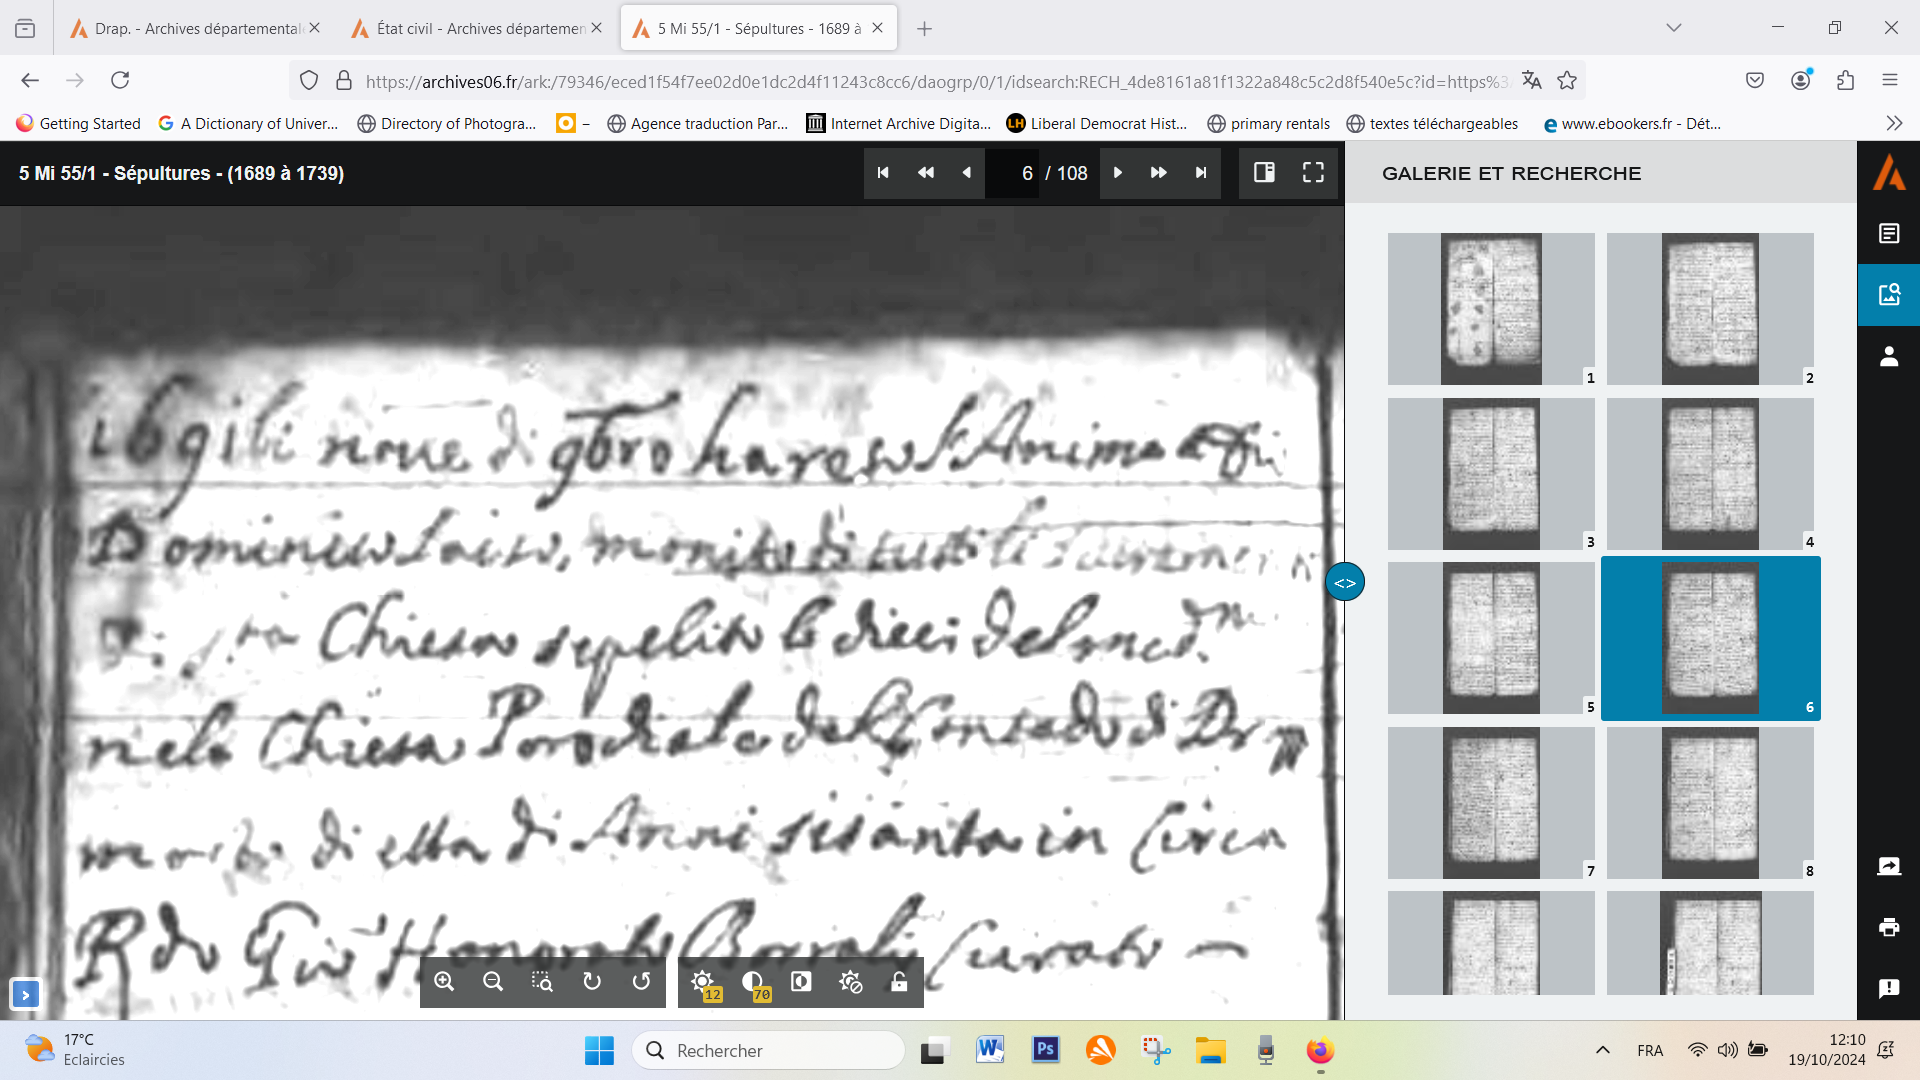 Drap. - Archives départementale
État civil - Archives départemen
5 Mi 55/1 - Sépultures - 1689 à
https://archives06.fr/ark:/79346/eced1f54f7ee02d0e1dc2d4f11243c8cc6/daogrp/0/1/idsearch:RECH_4de8161a81f1322a848c5c2d8f540e5c?id=https%3
Getting Started
A Dictionary of Univer...
Directory of Photogra...
–
Agence traduction Par...
Internet Archive Digita...
Liberal Democrat Hist...
primary rentals
textes téléchargeables
www.ebookers.fr - Dét...
5 Mi 55/1 - Sépultures - (1689 à 1739)
6 / 108
GALERIE ET RECHERCHE
li noue di
monito di tutti li
Chiesa sepelito le dieci del med.mo
nela Chiesa Parochiale del Contado di
di età di Anni sesanta in Circa
Rdo Gio Honorato Curato
12
70
<>
1
2
3
4
5
6
7
8
17°C
Eclaircies
Rechercher
FRA
12:10
19/10/2024